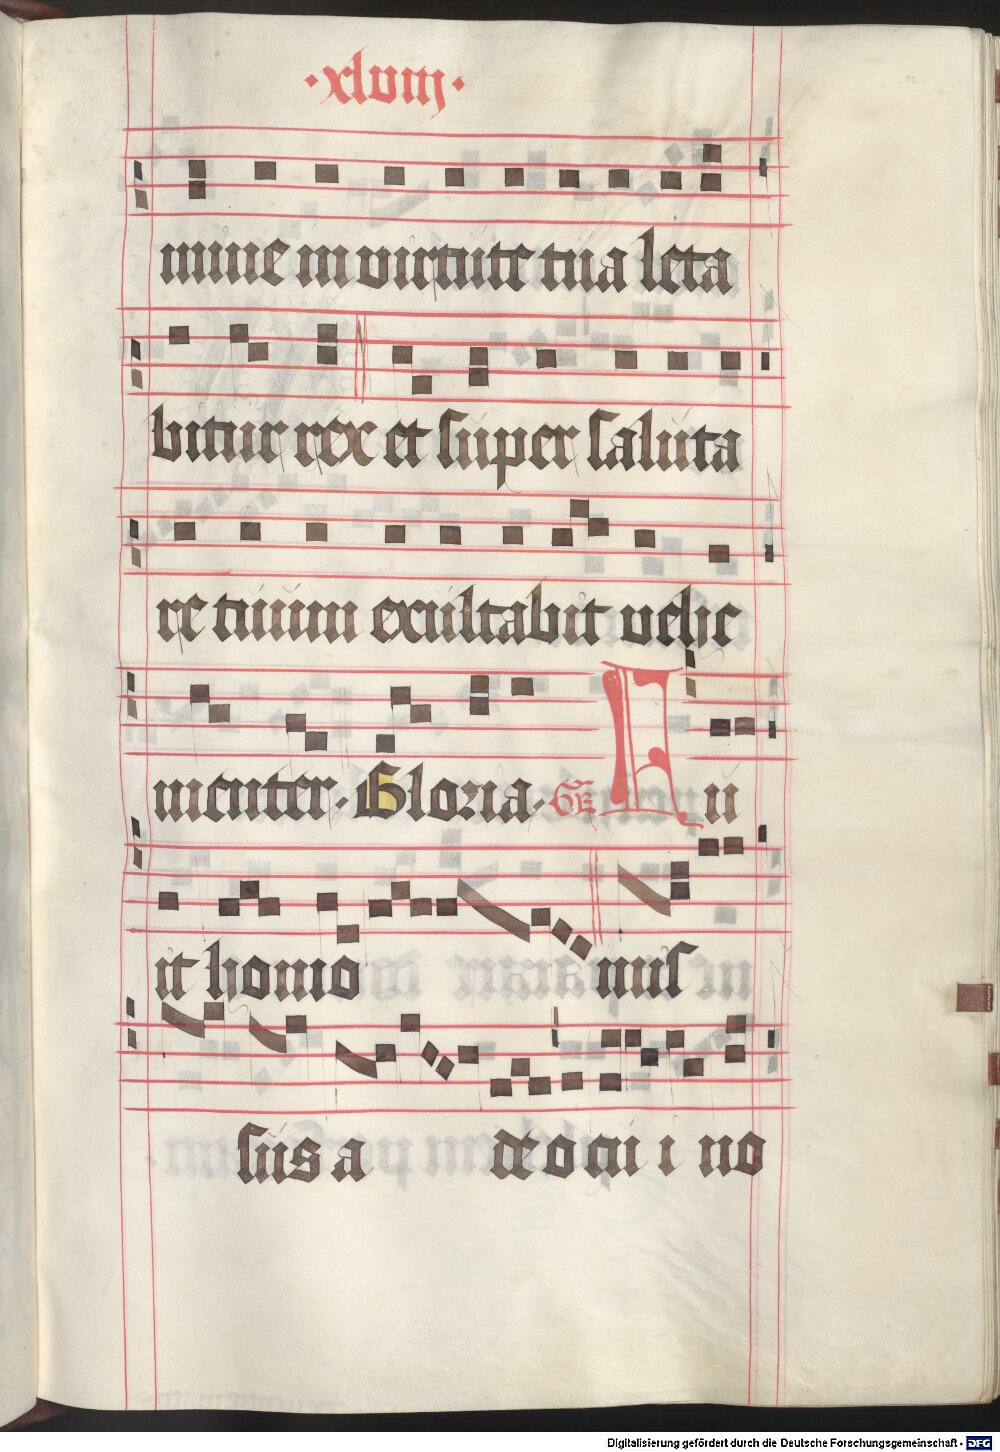 ·xlviii·
mine in virtute tua leta
bitur rex et super saluta
re tuum exultabit vehe
menter · Gloria · Gr Fu
it homo mis
sus a deo cui no
Digitalisierung gefördert durch die Deutsche Forschungsgemeinschaft - DFG